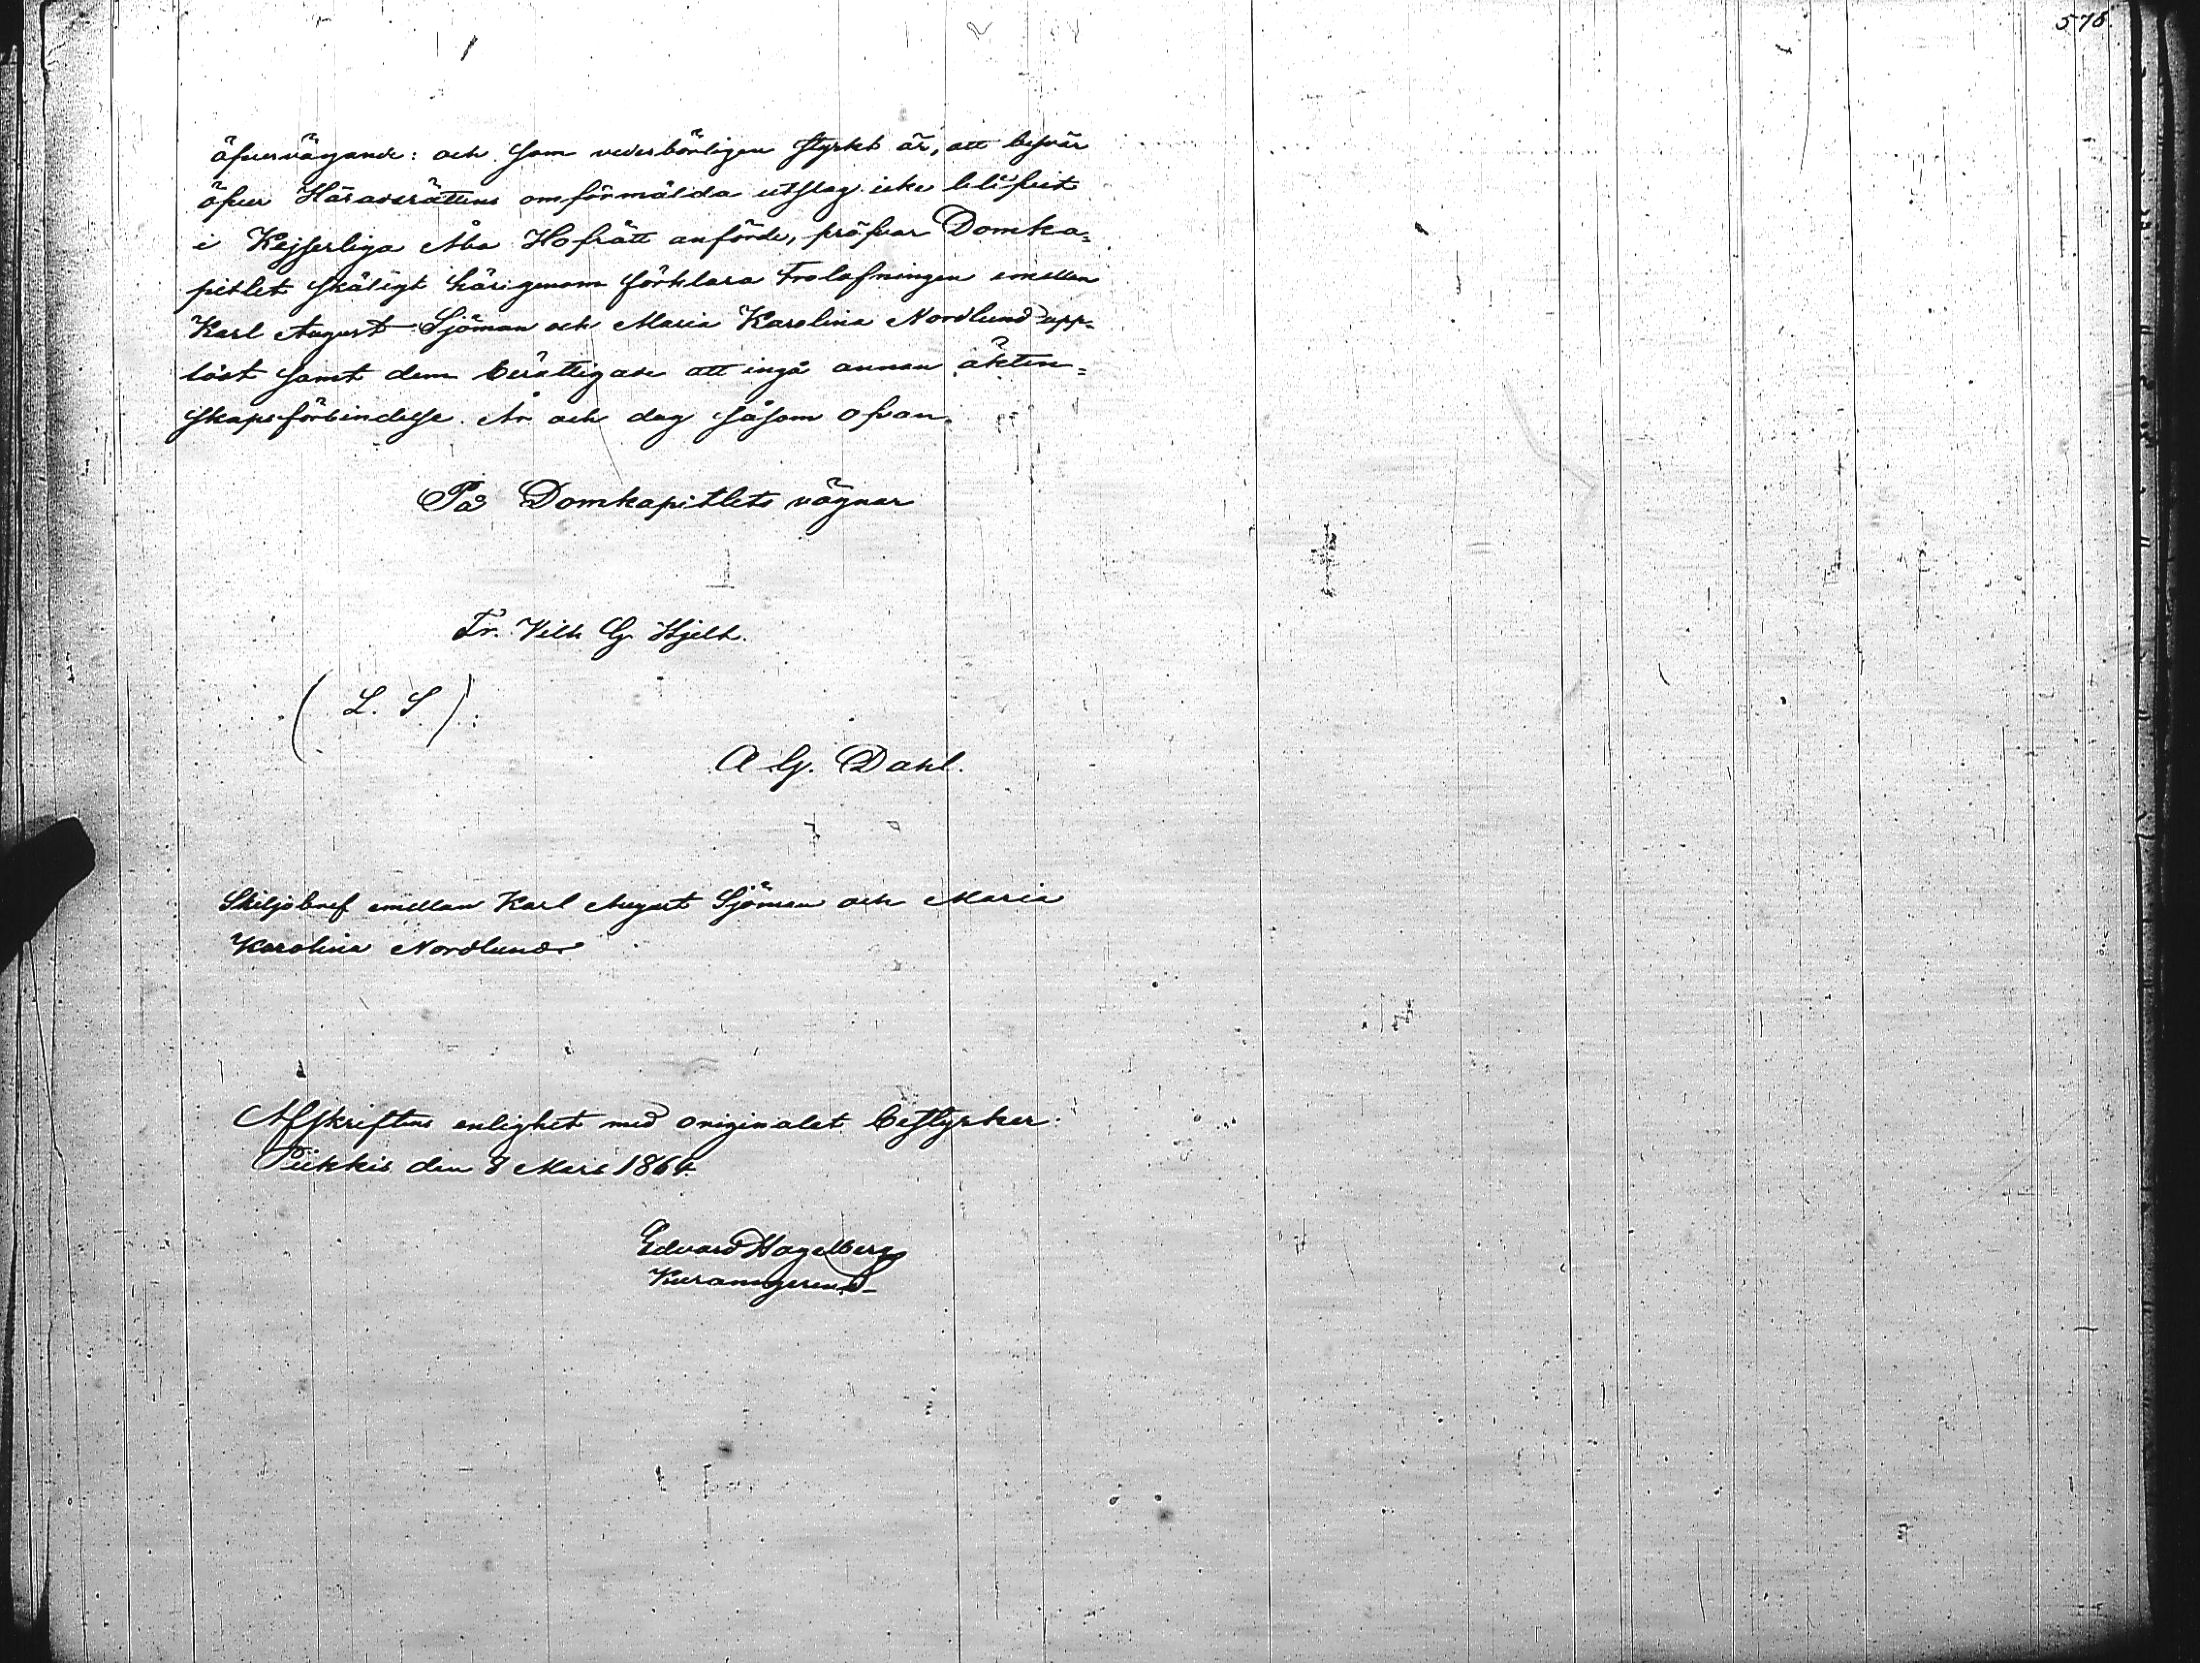 575.
öfvervägande: och som vederbörligen styrkt är, att besvär
öfver Häradsrättens omförmälda utslag icke blifvit
i Kejserliga Åbo Hofrätt anförde, pröfvar Domka=
pitlet skäligt härigenom förklara Trolofningen emellan
Karl August Sjöman och Maria Karolina Nordlund upp=
löst samt dem berättigade att ingå annan äkten=
skapsförbindelse. År och dag såsom ofvan.
På Domkapitlets vägnar
Fr. Vilh G Hjelt.
(L. S)
A G. Dahl.
Skiljobref emellan Karl August Sjöman och Maria
Karolina Nordlund
Afskriftens enlighet med originalet bestyrker.
Piikkis den 8 Mars 1864.
Edvard Hagelberg